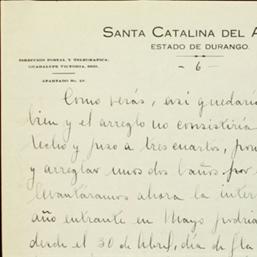 SANTA CATALINA DEL A
ESTADO DE DURANGO.
DIRECCION POSTAL Y TELEGRAFICA:
GUADALUPE VICTORIA, DGO.
APARTADO No. 10.
- 6 -
Como verás, así quedaría
bien y el arreglo no consistiría
techo y piso a tres cuartos, pon
y arreglar unos dos baños. por
levantáramos ahora la inter
año entrante en Mayo podría
desde el 30 de Abril, día de Sta